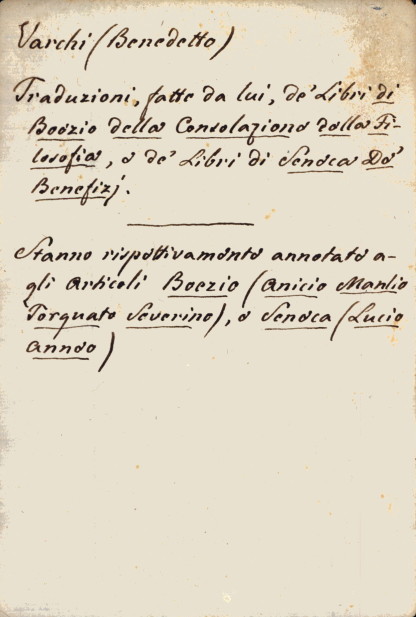 Varchi (Benedetto)
Traduzioni, fatte da lui, de' Libri di
Boezio della Consolazione dalla Fi-
losofia, e de' Libri di Seneca De'
Benefizj.
Stanno rispettivamente annotate a-
gli Articoli Boezio (Anicio Manlio
Torquato Severino), e Seneca (Lucio
Anneo)